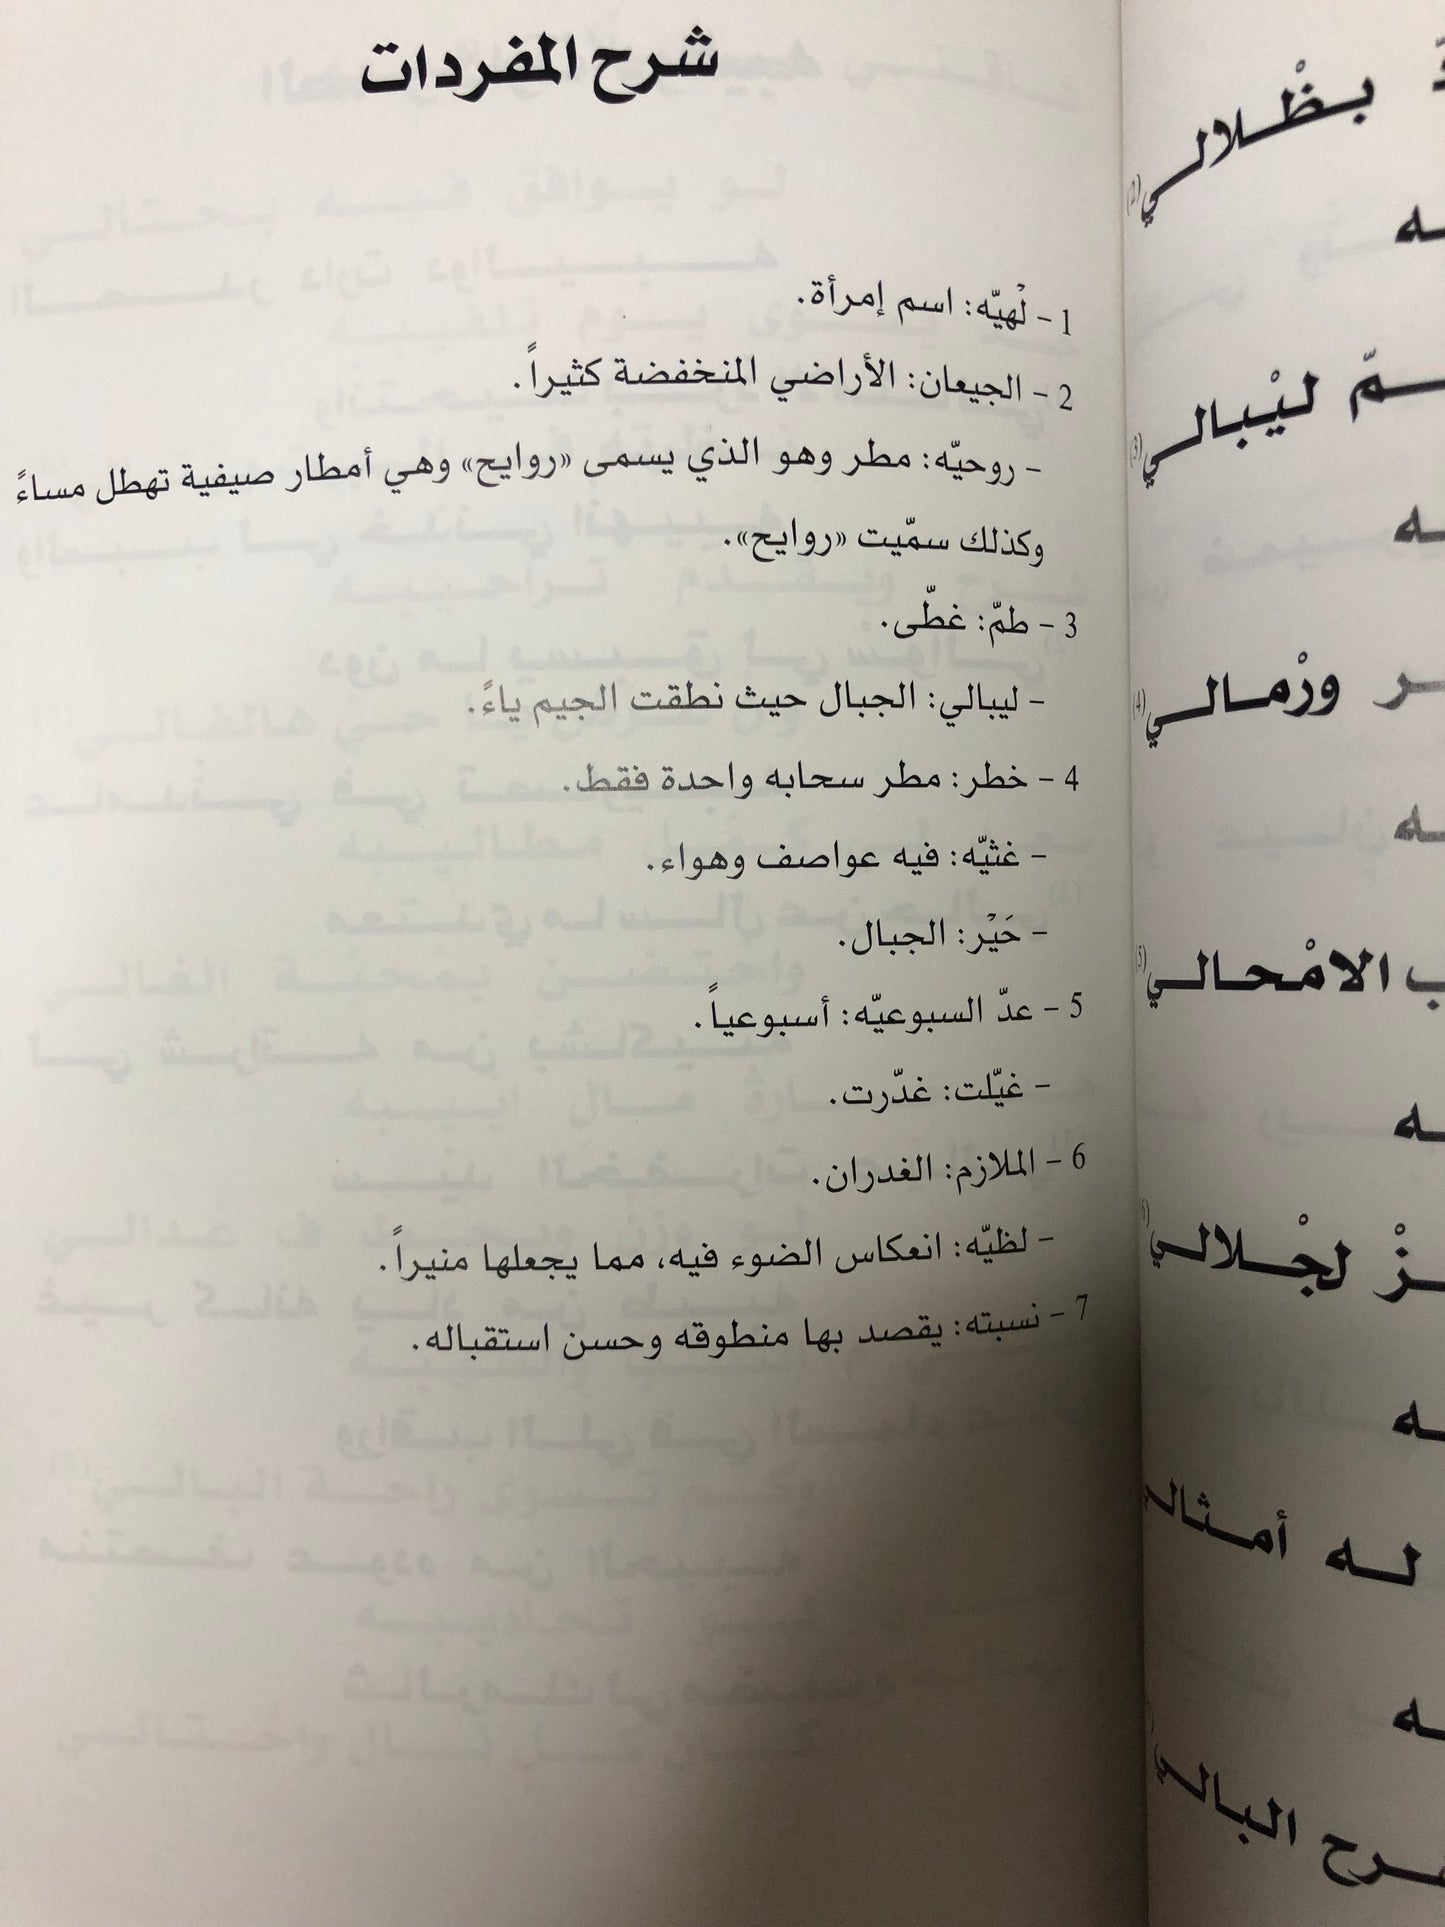 شرح المفردات
1 - لْهيّه: اسم إمرأة.
2 - الجيعان: الأراضي المنخفضة كثيراً.
- روحيّه: مطر وهو الذي يسمى «روايح» وهي أمطار صيفية تهطل مساءً
وكذلك سمّيت «روايح».
3 - طمّ: غطّى.
- ليبالي: الجبال حيث نطقت الجيم ياءً.
4 - خطر: مطر سحابه واحدة فقط.
- غثيّه: فيه عواصف وهواء.
- حَيْر: الجبال.
5 - عدّ السبوعيّه: أسبوعياً.
- غيّلت: غدّرت.
6 - الملازم: الغدران.
- لظيّه: انعكاس الضوء فيه، مما يجعلها منيراً.
7 - نسبته: يقصد بها منطوقه وحسن استقباله.
بظْلالي(2)
ليْبالي(3)
ورْمالي(4)
الامْحالي(5)
لجْلالي(6)
له أمثالي
البالي